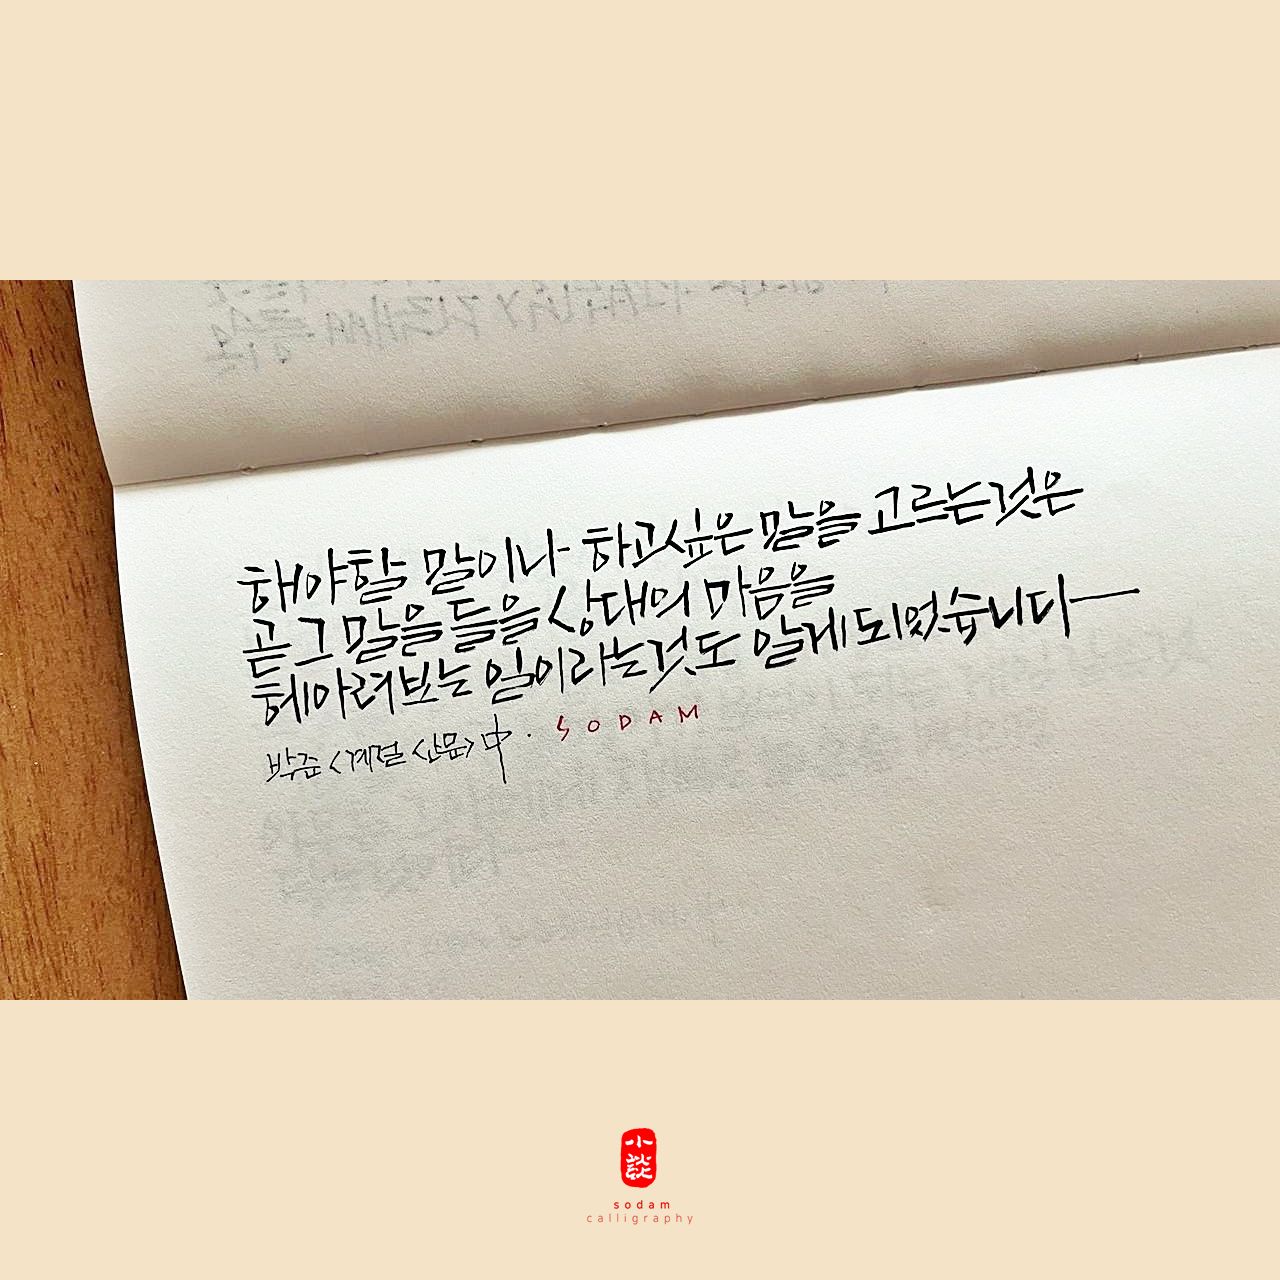 해야할 말이나 하고싶은 말을 고르는것은
곧 그 말을 들을 상대의 마음을
헤아려보는 일이라는것도 알게 되었습니다
박준 <계절 산문> 中. SODAM
小談
sodam
calligraphy